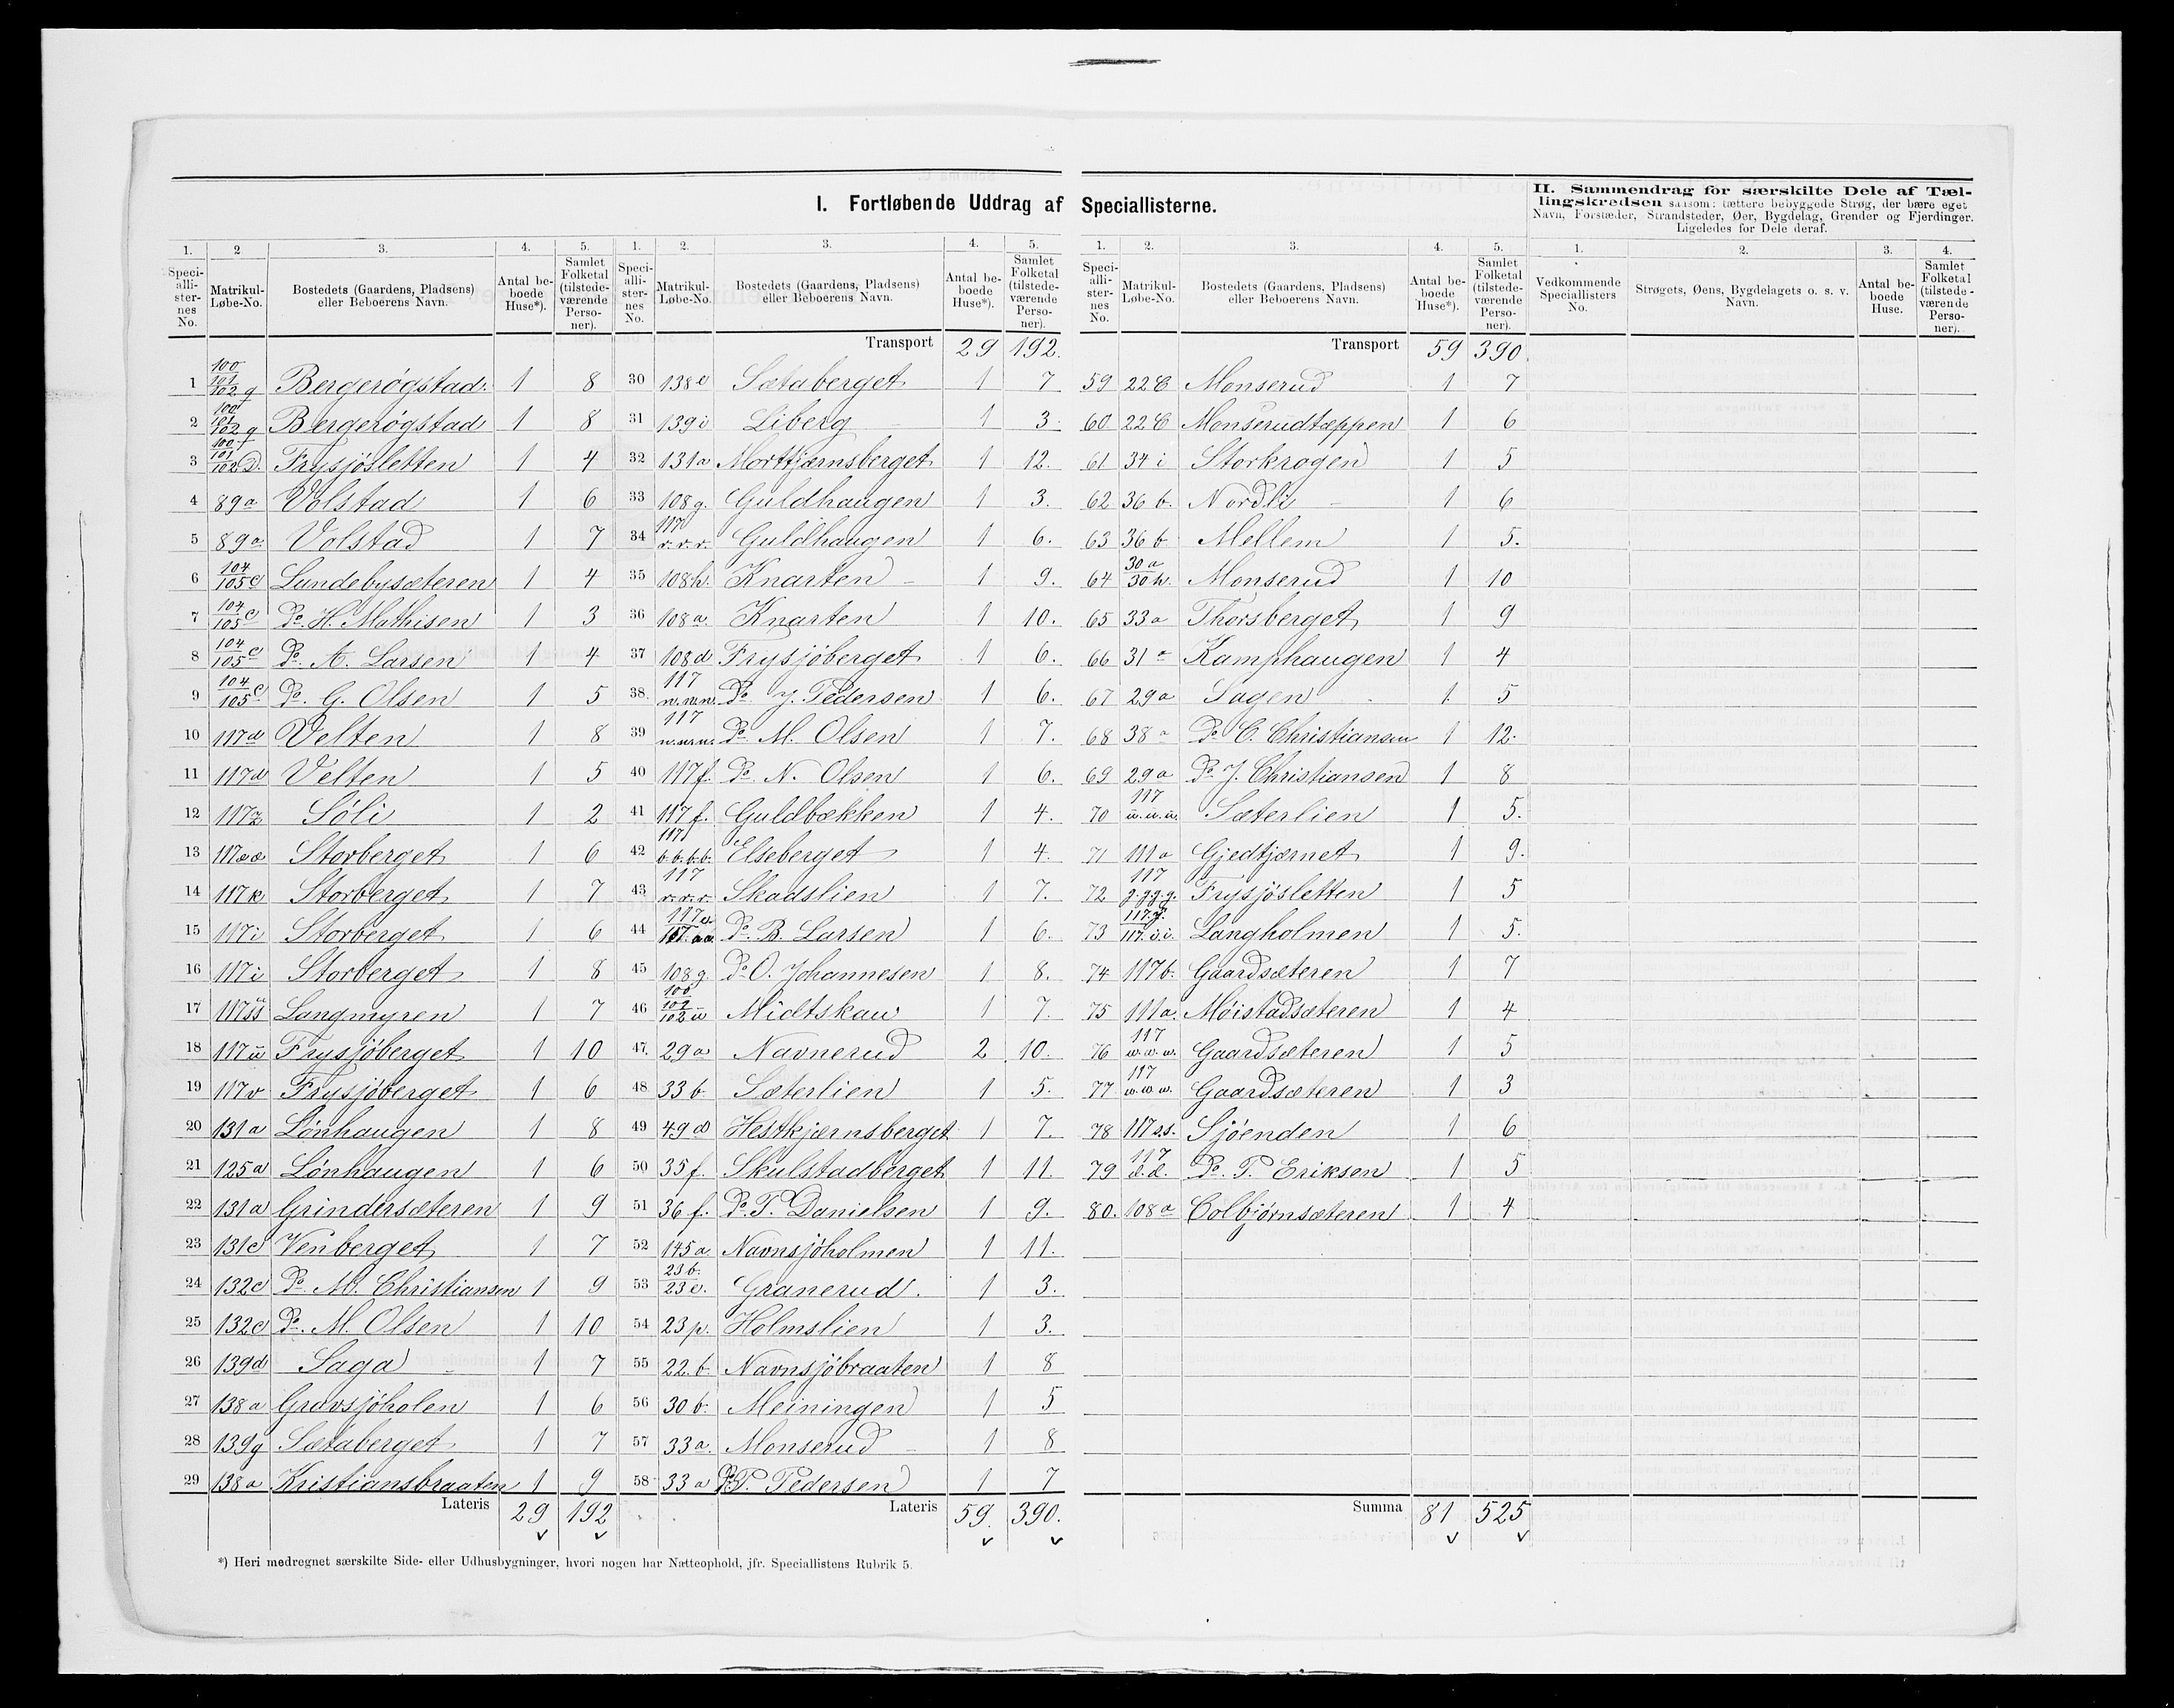 I. Fortløbende Uddrag af Speciallisterne.
II. Sammendrag for særskilte Dele af Tæl-
lingskredsen saasom: tættere bebyggede Strøg, der bære eget
Navn, Forstæder, Strandsteder, Øer, Bygdelag, Grender og Fjerdinger.
Ligeledes for Dele deraf.
1. 2 3. 4. 5.
Speciallisternes No. Matrikul-Løbe-No. Bostedets (Gaardens, Pladsens) eller Beboerens Navn. Antal beboede Huse*). Samlet Folketal (tilstedeværende Personer).
1 100/101/102 g Bergerøgstad. 1 8
2 100/101/102 g Bergerøgstad 1 8
3 100/101/102 D. Frysjøsletten 1 4
4 89a Volstad 1 6
5 89a Volstad 1 7
6 104/105 c Lundebysæteren 1 4
7 104/105 c Do. H. Mathisen 1 3
8 104/105 c Do. A. Larsen 1 4
9 104/105 c Do. G. Olsen 1 5
10 117d Velten 1 8
11 117d Velten 1 5
12 117z Søli 1 2
13 117ææ Storberget 1 6
14 117k Storberget 1 7
15 117i Storberget 1 6
16 117i Storberget 1 8
17 117ss Langmyren 1 7
18 117ü Frysjøberget 1 10
19 117v Frysjøberget 1 6
20 131a Lønhaugen 1 8
21 125a Lønhaugen 1 6
22 131a Grindersæteren 1 9
23 131c Venberget 1 7
24 132c Do. M. Christiansen 1 9
25 132c Do. M. Olsen 1 10
26 139d Saga 1 7
27 138a Gravsjøholen 1 6
28 139g Sætaberget 1 7
29 138a Kristiansbraaten 1 9
Lateris 29 192
1. 2. 3. 4. 5.
Speciallisternes No. Matrikul-Løbe-No. Bostedets (Gaardens, Pladsens) eller Beboerens Navn. Antal beboede Huse*). Samlet Folketal (tilstedeværende Personer).
Transport 29 192.
30 138e Sætaberget 1 7
31 139i Liberg 1 3.
32 131a Morttjærnsberget 1 12.
33 108g. Guldhaugen 1 3.
34 117 r.r.r. Guldhaugen 1 6.
35 108h. Knarten 1 9.
36 108a. Knarten 1 10.
37 108d Frysjøberget 1 6.
38. 117 n.n.n. Do J. Pedersen 1 6.
39 117 n.n.n. Do M. Olsen 1 7.
40 117f. Do. N. Olsen 1 6.
41 117f. Guldbækken 1 4.
42 117 b.b.b.b. Elseberget 1 4.
43 117 r.r.r. Skadslien 1 7.
44 117e./117.aa Do. B. Larsen 1 6.
45 108g Do O. Johannesen 1 8.
46 100/101/102 ü Midtskau 1 7.
47. 29a Navnerud 2 10.
48. 33b. Sæterlien 1 5.
49 49d Hestkjærnsberget 1 7.
50 35f. Skulstadberget 1 11.
51 36f. Do. T. Danielsen 1 9.
52 145a Navnsjøholmen 1 11.
53 23b./23e. Granerud. 1 3.
54 23p. Holmslien 1 3.
55 22.b. Navnsjøbraaten 1 8
56 30b. Meiningen 1 5
57 33a. Monserud 1 8
58 33a Do P. Pedersen 1 7
Lateris 59. 390.
1. 2. 3. 4. 5.
Speciallisternes No. Matrikul-Løbe-No. Bostedets (Gaardens, Pladsens) eller Beboerens Navn. Antal beboede Huse*). Samlet Folketal (tilstedeværende Personer).
Transport 59 390
59 22C Monserud 1 7
60 22C Monserudtæppen 1 6
61 34i Storkrogen 1 5
62 36b. Nordli 1 6
63 36b Mellem 1 5.
64 30a/30h. Monserud 1 10
65 33a Thorsberget 1 9
66 31a Kamphaugen 1 4
67 29a Sagen 1 5
68 38a Do C. Christiansen 1 12.
69 29a Do J. Christiansen 1 8
70 117 ü.ü.ü. Sæterlien 1 5.
71 111a Gjedtjærnet 1 9.
72 117 g.g.g.g. Frysjøsletten 1 5
73 117.f./117.i.i. Langholmen 1 5.
74 117b. Gaardsæteren 1 7
75 111a. Møistadsæteren 1 4
76 117 w.w.w. Gaardsæteren 1 5
77 117 w.w.w. Gaardsæteren 1 3
78 117s.s. Sjøenden 1 6
79 117 d.d. Do. P. Eriksen 1 5
80. 108a Colbjørnsæteren 1 4
Summa 81 525
1. 2. 3. 4.
Vedkommende Speciallisters No. Strøgets, Øens, Bygdelagets o. s. v. Navn. Antal beboede Huse. Samlet Folketal (tilstedeværende Personer).
*) Heri medregnet særskilte Side- eller Udhusbygninger, hvori nogen har Natteophold, jfr. Speciallistens Rubrik 5.